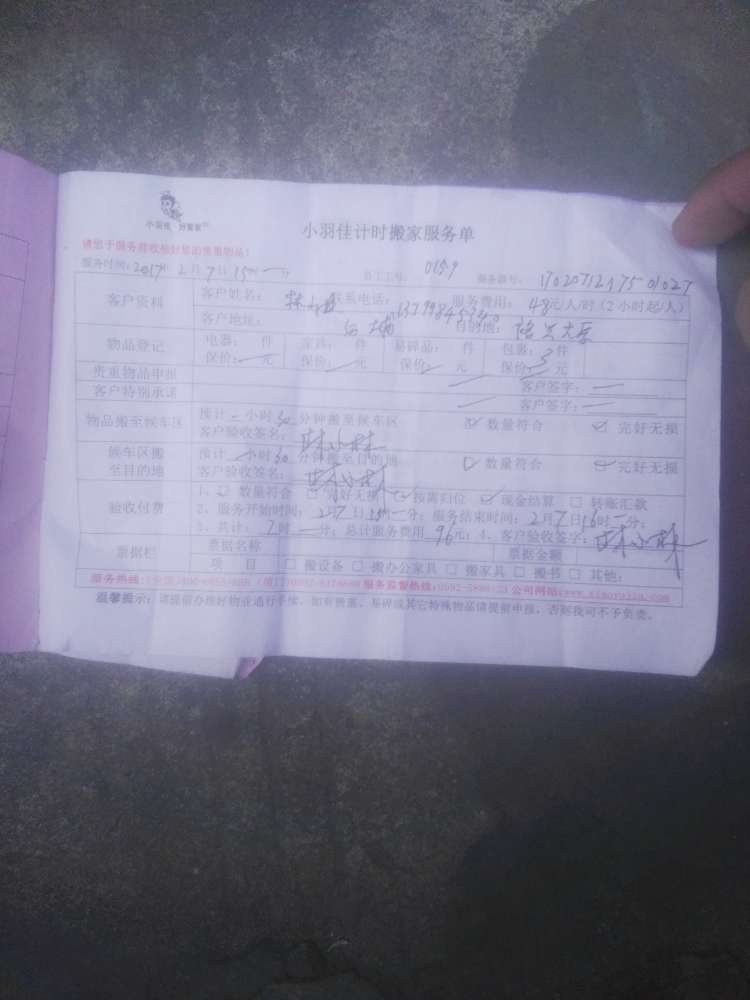 小羽佳 好管家
小羽佳计时搬家服务单
请您于服务前收拾好贵重物品！
服务时间：2017年2月7日15时一分 员工工号： 0159 服务单号： 1702071217501027
客户资料 客户姓名： 林 联系电话： 服务费用： 48元/人/时（2小时起/人）
客户地址： 目的地：
物品登记 电器： 件 家具： 件 易碎品： 件 包裹：3件
保价：一元 保价：一元 保价：一元 保价：一元
贵重物品申报 一 客户签字：一
客户特别承诺 一 客户签字：一
物品搬至候车区 预计一小时30分钟搬至候车区 ☑ 数量符合 ☑ 完好无损
客户验收签名：林小林
候车区搬至目的地 预计一小时30分钟搬至目的地 ☑ 数量符合 ☑ 完好无损
客户验收签名：林小林
验收付费 1、☑ 数量符合 ☑ 完好无损 ☑ 按需归位 ☑ 现金结算 □ 转账汇款
2、服务开始时间：2月7日15时一分；服务结束时间：2月7日16时一分；
3、共计： 时一分；总计服务费用 96元；4、客户验收签字：林小林
票据栏 票据名称 票据金额
项 目 □ 搬设备 □ 搬办公家具 □ 搬家具 □ 搬书 □ 其他：
服务热线： 服务监督热线： 公司网站：
温馨提示：请提前办理好物业通行手续，如有贵重、易碎或其它特殊物品请提前申报，否则我司不予负责。